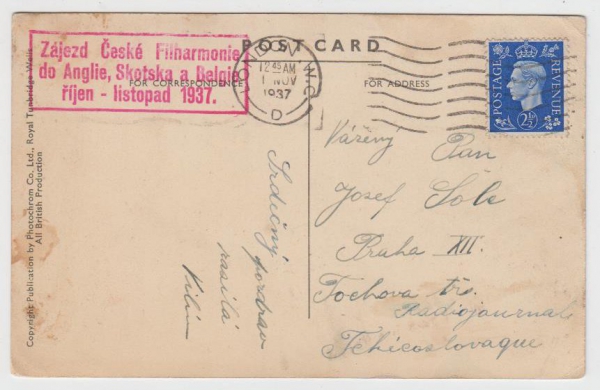 Zájezd České Filharmonie
do Anglie, Skotska a Belgie
říjen - listopad 1937.
POST CARD
FOR CORRESPONDENCE
FOR ADDRESS
LONDON W.C
12 45 AM
1 NOV
1937
D
POSTAGE
REVENUE
2½D
Copyright Publication by Photochrom Co., Ltd., Royal Tunbridge Wells
All British Production
Srdečný
pozdrav
zasílá
Vážený Pan
Josef
Praha XII.
Fochova tř.
Radiojournal
Tchécoslovaque